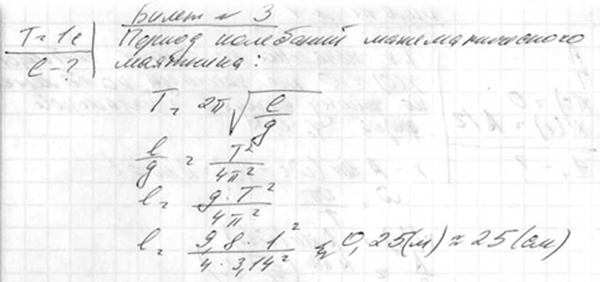 Билет № 3
T = 1с
l - ?
Период колебаний математического
маятника:
T = 2π√(l/g)
l/g = T²/4π²
l = g·T²/4π²
l = 9,8·1²/4·3,14² ≈ 0,25(м) ≈ 25(см)